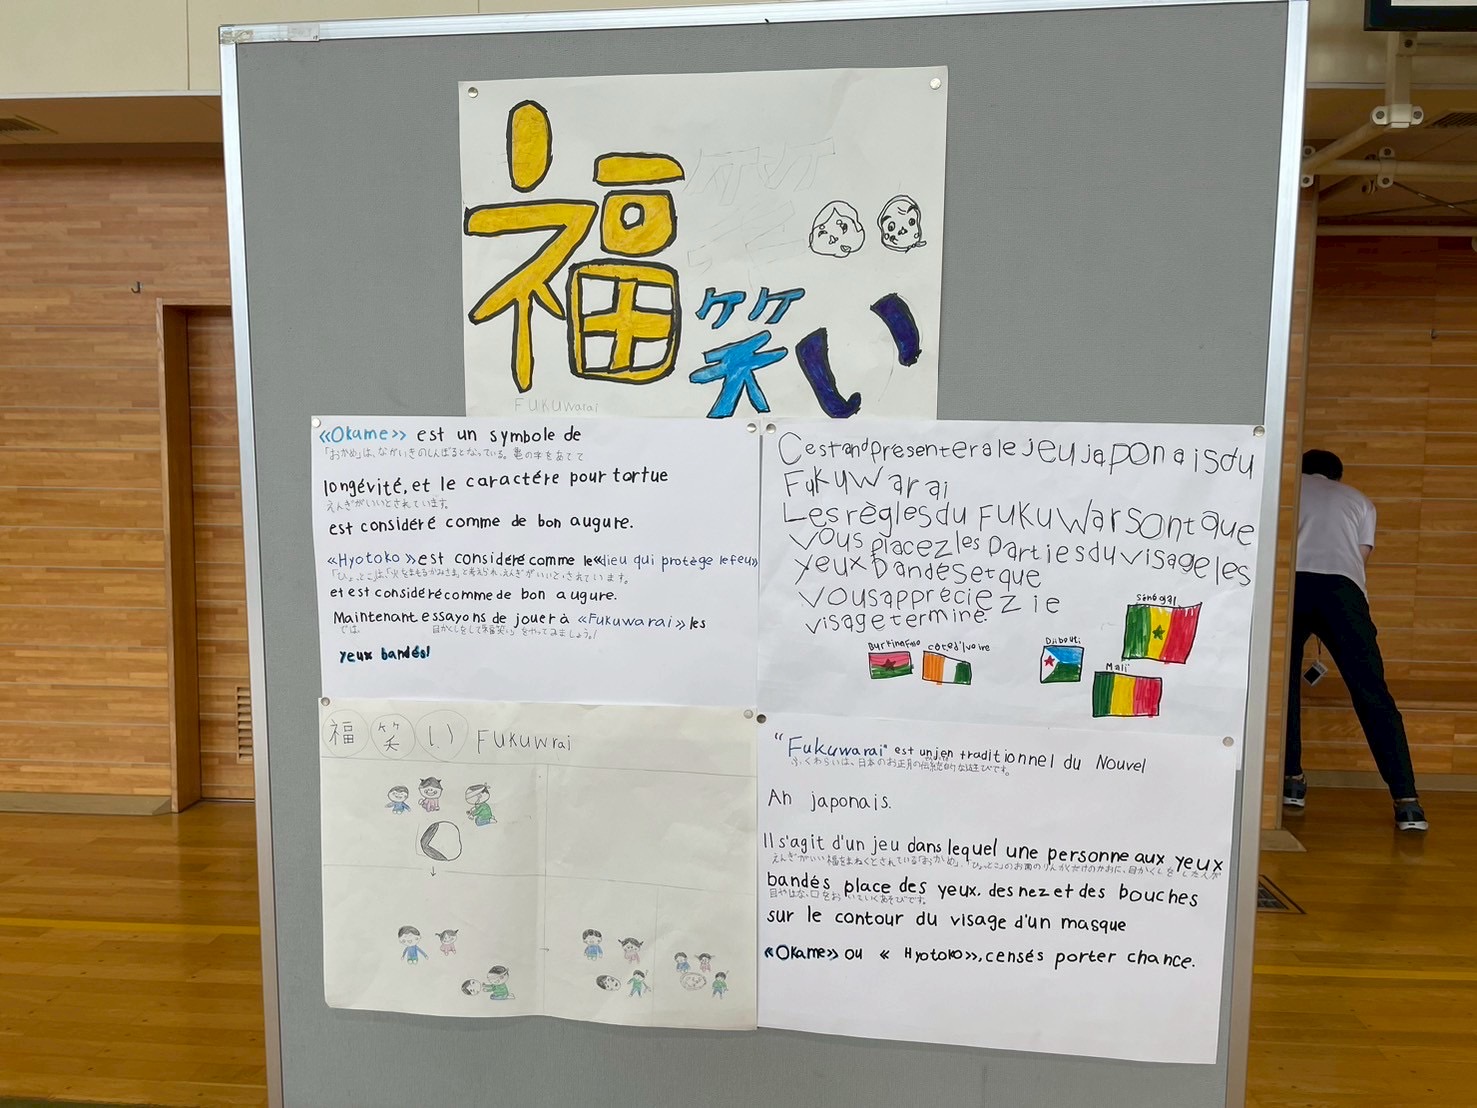 福笑い
Fukuwarai
«Okame» est un symbole de
「おかめ」は、ながいきのしんぼるとなっている。亀の字をあてて
longévité, et le caractére pour tortue
えんぎがいいとされています。
est considéré comme de bon augure.
«Hyotoko» est considéré comme le «dieu qui protège le feu»
「ひょっとこ」は、「火をまもるかみさま」と考えられ、えんぎがいいとされています。
et est considéré comme de bon augure.
Maintenant essayons de jouer à «Fukuwarai» les
では、目かくしをして福笑いをやってみましょう!
yeux bandés!
C'est and presenterale jeu japonais du
Fukuwarai
Les règles du Fukuwar sont que
vous placez les parties du visage les
yeux bandés et que
vous appréciez le
visage terminé.
Sénégal
Burkina Faso
côte d'Ivoire
Djibouti
Mali
福笑い Fukuwrai
"Fukuwarai" est un jen traditionnel du Nouvel
ふくわらいは、日本のお正月の伝統的な遊びです。
An japonais.
Il s'agit d'un jeu dans lequel une personne aux yeux
えんぎがいい福をまねくとされている「おかめ」、「ひょっとこ」のお面のりんかくだけのかおに、目かくしをした人が
bandés place des yeux, des nez et des bouches
目やはな、口をおいていくあそびです。
sur le contour du visage d'un masque
«Okame» ou « Hyotoko», censés porter chance.